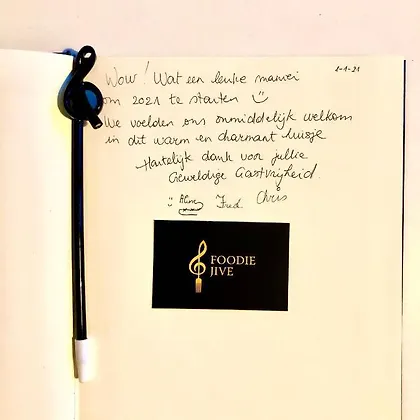 1-1-21
Wow! Wat een leuke manier
om 2021 te starten
We voelden ons onmiddelijk welkom
in dit warm en charmant huisje
Hartelijk dank voor jullie
Geweldige Gastvrijheid.
Aline Fred Chris
FOODIE
JIVE